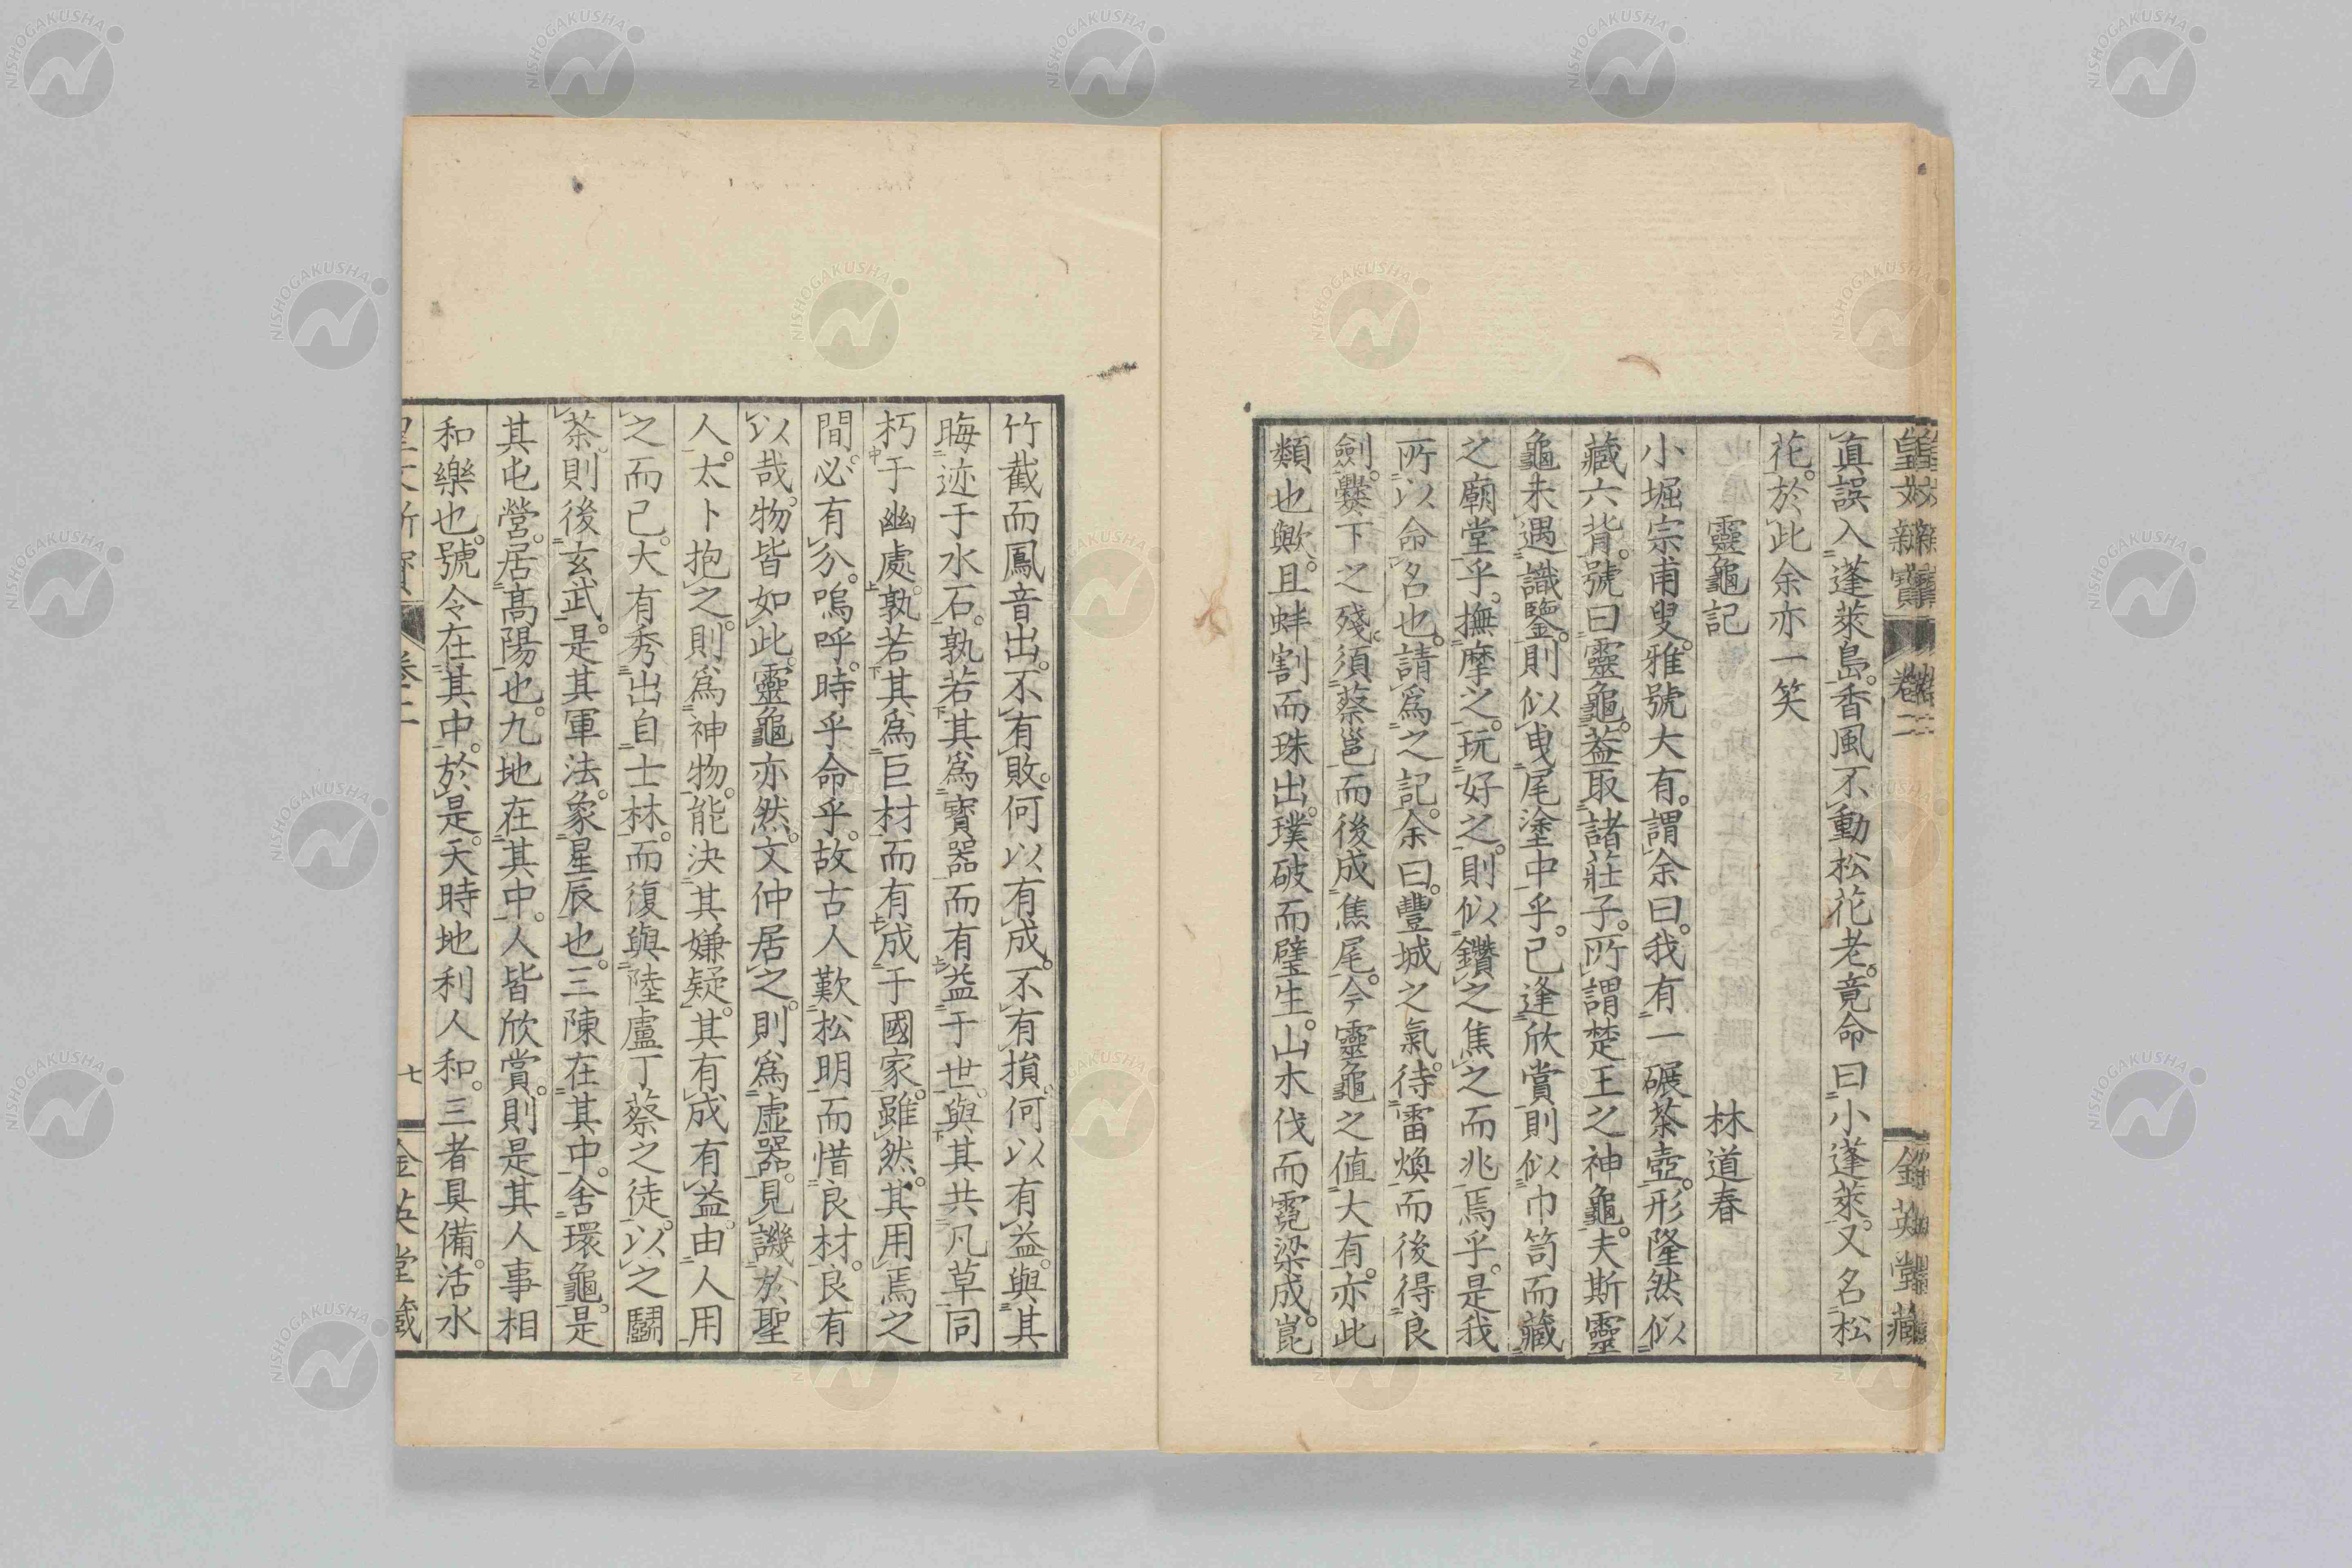 眞誤入蓬萊島。香風不動松花老。竟命曰小蓬萊。又名松
花。於此余亦一笑
靈龜記　林道春
小堀宗甫叟。雅號大有。謂余曰。我有一碾茶壺。形隆然似
藏六背。號曰靈龜。蓋取諸莊子。所謂楚王之神龜。夫斯靈
龜未遇識鑒。則似曳尾塗中乎。已逢欣賞則似巾笥而藏
之廟堂乎。撫摩之。玩好之。則似鑽之焦之而兆焉乎。是我
所以命名也。請爲之記。余曰。豐城之氣。待雷煥而後得良
劍。爨下之殘。須蔡邕而後成焦尾。今靈龜之値大有。亦此
類也歟。且蚌割而珠出。璞破而璧生。山木伐而霓梁成。崑
竹截而鳳音出。不有敗。何以有成。不有損。何以有益。與其
晦迹于水石。孰若其爲寶器而有益于世。與其共凡草同
朽于幽處。孰若其爲巨材而有成于國家。雖然。其用焉之
間。必有分。嗚呼。時乎命乎。故古人歎松明而惜良材。良有
以哉。物皆如此。靈龜亦然。文仲居之。則爲虛器。見譏於聖
人。太卜抱之。則爲神物。能決其嫌疑。其有成有益。由人用
之而已。大有秀出自士林。而復與陸盧丁蔡之徒。以之鬭
茶。則後玄武。是其軍法。象星辰也。三陳在其中。舍環龜。是
其屯營。居高陽也。九地在其中。人皆欣賞。則是其人事相
和樂也。號令在其中。於是。天時地利人和。三者具備。活水
卷二
七
金英堂藏